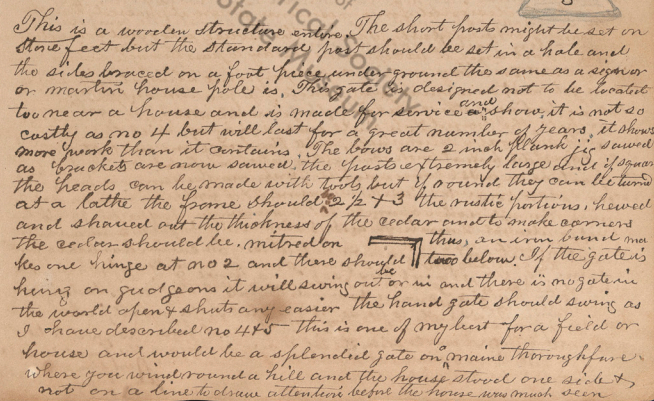 This is a wooden structure entire. The short posts might be set on
stone feet but the standard post should be set in a hole and
the sides braced on a foot piece under ground the same as a sign or
or martin house pole is. This gate is designed not to be located
too near a house and is made for service and show, it is not so
costly as no 4 but will last for a great number of years, it shows
more work than it contains. The bows are 2 inch plank jig sawed
as brackets are now sawed. the posts extremely large and if square
the heads can be made with tools but if round they can be turned
at a lathe the frame should 2 1/2 + 3 the rustic portions, hewed
and shaved out the thickness of the cedar and to make corners
the cedar should be mitred on thus, an iron band ma
kes one hinge at no 2 and there should be two below. If the gate is
hung on gudgeons it will swing out or in and there is no gate in
the world opens & shuts any easier the hand gate should swing as
I have described no 4+5 this is one of my best for a field or
house and would be a splendid gate on maine thoroughfare
where you wind round a hill and the house stood one side &
not on a line to draw attention before the house was much seen